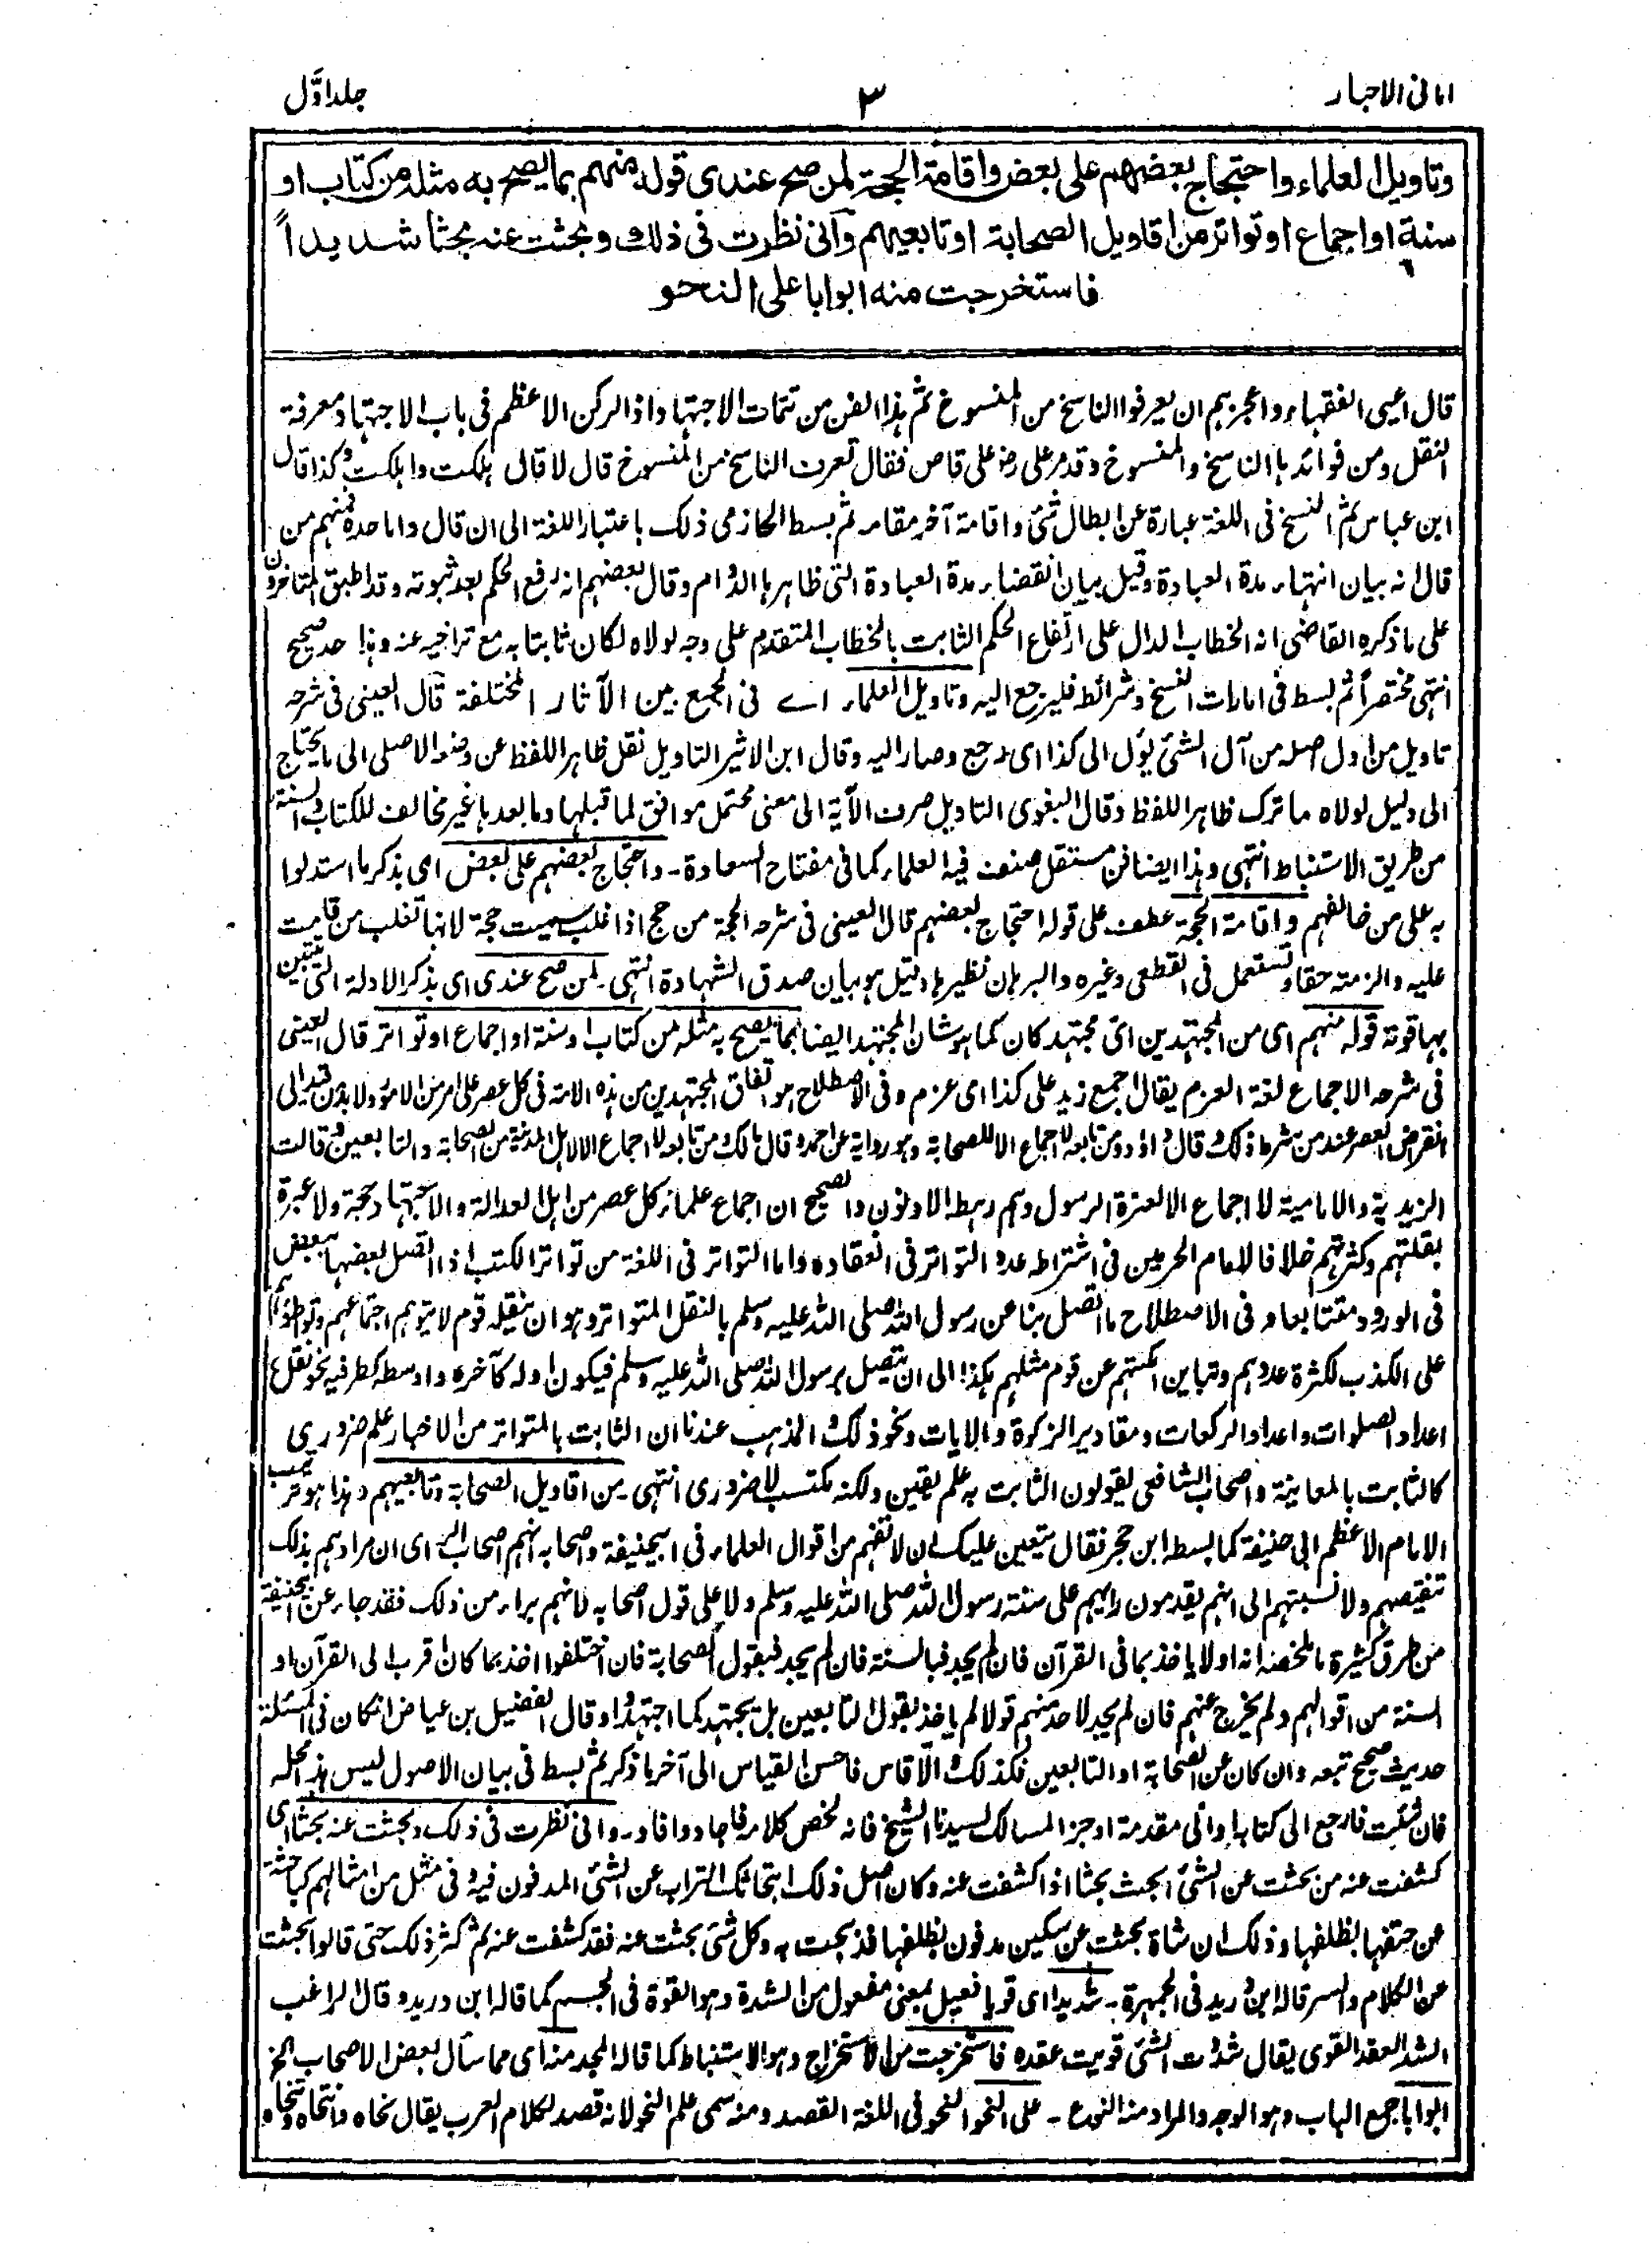 امانی الاحبار ۳ جلد اوّل
وتاويل العلماء واحتجاج بعضهم على بعض واقامة الحجة لمن صح عندى قوله منهم بما يصح به مثله من كتاب او
سنة او اجماع او تواتر من اقاويل الصحابة او تابعيهم وآنى نظرت فى ذلك وبحثت عنه بحثا شديداً
فاستخرجت منه ابوابا على النحو
قال اعيى الفقهاء واعجزهم ان يعرفوا الناسخ من المنسوخ ثم هذا الفن من تتمات الاجتهاد اذ الركن الاعظم فى باب الاجتهاد معرفة
النقل ومن فوائدها الناسخ والمنسوخ وقد مر على رض على قاص فقال تعرف الناسخ من المنسوخ قال لا قال هلكت واهلكت وكذا قال
ابن عباس ثم النسخ فى اللغة عبارة عن ابطال شئ واقامة آخر مقامه ثم بسط الحازمى ذلك باعتبار اللغة الى ان قال واما حده فمنهم من
قال انه بيان انتهاء مدة العبادة وقيل بيان انقضاء مدة العبادة التى ظاهرها الدوام وقال بعضهم انه رفع الحكم بعد ثبوته وقد اطبق المتاخرون
على ما ذكره القاضى انه الخطاب الدال على ارتفاع الحكم الثابت بالخطاب المتقدم على وجه لولاه لكان ثابتا به مع تراخيه عنه وهذا حد صحيح
انتهى مختصراً ثم بسط فى امارات النسخ وشرائطه فليرجع اليه وتاويل العلماء اے فى الجمع بين الآثار المختلفة قال العينى فى شرحه
تاويل من اول اصله من آل الشئ يؤل الى كذا اى رجع وصار اليه وقال ابن الاثير التاويل نقل ظاهر اللفظ عن وضعه الاصلى الى ما يحتاج
الى دليل لولاه ما ترك ظاهر اللفظ وقال البغوى التاويل صرف الآية الى معنى محتمل موافق لما قبلها وما بعدها غير مخالف للكتاب والسنة
من طريق الاستنباط انتهى وهذا ايضا فن مستقل صنف فيه العلماء كما فى مفتاح السعادة۔ واحتجاج بعضهم على بعض اى بذكر ما استدلوا
به على من خالفهم واقامة الحجة عطف على قوله احتجاج بعضهم قال العينى فى شرحه الحجة من حج اذا غلب سميت حجة لانها تغلب من قامت
عليه والزمته حقا وتستعمل فى القطعى وغيره والبرهان نظيرها وقيل هو بيان صدق الشهادة انتهى۔ لمن صح عندى اى بذكر الادلة التى يتبين
بها قوته قوله منهم اى من المجتهدين اى مجتهد كان كما هو شان المجتهد ايضا بما يصح به مثله من كتاب او سنة او اجماع او تواتر قال العينى
فى شرحه الاجماع لغة العزم يقال اجمع زيد على كذا اى عزم وفى الاصطلاح هو اتفاق المجتهدين من هذه الامة فى كل عصر على امر من الامور ولا بد من قيد الى
انقراض العصر عند من شرط ذلك وقال داؤد ومن تابعه لا اجماع الا للصحابة وهو رواية عن احمد وقال مالك ومن تابعه لا اجماع الا لاهل المدينة من الصحابة والتابعين وقالت
الزيدية والامامية لا اجماع الا لعترة الرسول وهم رهطه الادنون والصحيح ان اجماع علماء كل عصر من اهل العدالة والاجتهاد حجة ولا عبرة
بقلتهم وكثرتهم خلافا لامام الحرمين فى اشتراطه عدد التواتر فى انعقاده واما التواتر فى اللغة من تواتر الكتب اذا اتصل بعضها ببعض
فى الورود متتابعا وفى الاصطلاح ما اتصل بنا عن رسول الله صلى الله عليه وسلم بالنقل المتواتر وهو ان ينقله قوم لا يتوهم اجتماعهم وتواطؤهم
على الكذب لكثرة عددهم وتباين امكنتهم عن قوم مثلهم هكذا الى ان يتصل برسول الله صلى الله عليه وسلم فيكون اوله كآخره واوسطه كطرفيه نحو نقل
اعداد الصلوات واعداد الركعات ومقادير الزكوة والديات ونحو ذلك والمذهب عندنا ان الثابت بالمتواتر من الاخبار علم ضرورى
كالثابت بالمعاينة واصحاب الشافعى يقولون الثابت به علم يقين ولكنه مكتسب لا ضرورى انتهى۔ من اقاويل الصحابة وتابعيهم وهذا هو مذهب
الامام الاعظم ابى حنيفة كما بسطه ابن حجر فقال يتعين عليك ان لا تفهم من اقوال العلماء فى ابيحنيفة واصحابه انهم اصحاب الراى ان مرادهم بذلك
تنقيصهم ولا نسبتهم الى انهم يقدمون رايهم على سنة رسول الله صلى الله عليه وسلم ولا على قول اصحابه لانهم براء من ذلك فقد جاء عن ابيحنيفة
من طرق كثيرة ما ملخصه انه اولا ياخذ بما فى القرآن فان لم يجد فبالسنة فان لم يجد فبقول الصحابة فان اختلفوا اخذ بما كان اقرب الى القرآن او
السنة من اقوالهم ولم يخرج عنهم فان لم يجد لاحد منهم قولا لم ياخذ بقول التابعين بل يجتهد كما اجتهدوا وقال الفضيل بن عياض ان كان فى المسئلة
حديث صحيح تبعه وان كان عن الصحابة او التابعين فكذلك والا قاس فاحسن القياس الى آخر ما ذكر ثم بسط فى بيان الاصول ليس هذا محله
فان شئت فارجع الى كتابه او الى مقدمة اوجز المسالك لسيدنا الشيخ فانه لخص كلامه فاجاد وافاد۔ وانى نظرت فى ذلك وبحثت عنه بحثا اى
كشفت عنه من بحثت عن الشئ ابحث بحثا اذا كشفت عنه وكان اصل ذلك ابتحاثك التراب عن الشئ المدفون فيه وفى مثل من امثالهم كباحثة
عن حتفها بظلفها وذلك ان شاة بحثت عن سكين مدفون بظلفها فذبحت به وكل شئ بحثت عنه فقد كشفت عنه ثم كثر ذلك حتى قالوا بحثت
عن الكلام والسر قاله ابن دريد فى الجمهرة۔ شديدا اى قويا فعيل بمعنى مفعول من الشدة وهو القوة فى الجسم كما قاله ابن دريد وقال الراغب
الشد العقد القوى يقال شددت الشئ قويت عقده فاستخرجت من الاستخراج وهو الاستنباط كما قاله المجد منه اى مما سأل بعض الاصحاب الخ
ابوابا جمع الباب وهو الوجه والمراد منه النوع۔ على النحو النحو فى اللغة القصد ومنه سمى علم النحو لانه قصد لكلام العرب يقال نحاه وانتحاه